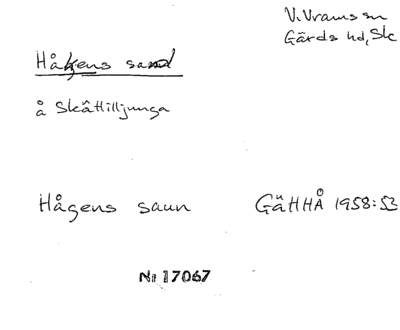 V. Vram sn
Gärds hd, Sk
Håkens sand
å Skättilljunga
Hågens saun GäHHÅ 1958:53
Nr 17067